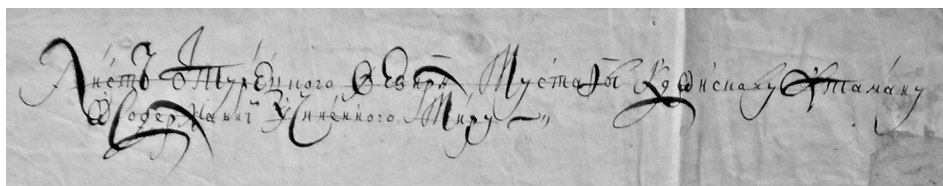 Листъ ѿ Турецкого Везиря Мустафы Атаману
О Содержании Учиненного Миру